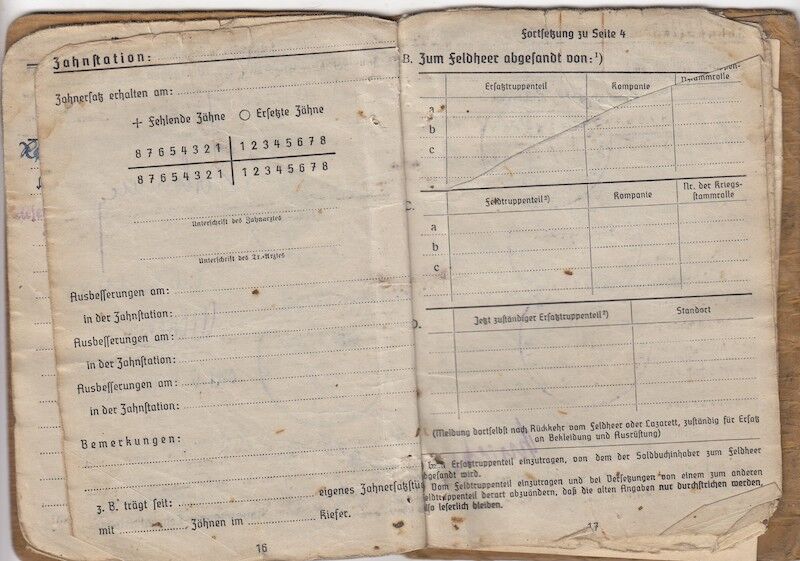 Zahnstation:
Zahnersatz erhalten am:
+ Fehlende Zähne ○ Ersetzte Zähne
8 7 6 5 4 3 2 1 | 1 2 3 4 5 6 7 8
8 7 6 5 4 3 2 1 | 1 2 3 4 5 6 7 8
Unterschrift des Zahnarztes
Unterschrift des Tr.-Arztes
Ausbesserungen am:
in der Zahnstation:
Ausbesserungen am:
in der Zahnstation:
Ausbesserungen am:
in der Zahnstation:
Bemerkungen:
z. B. trägt seit: eigenes Zahnersatzstü
mit Zähnen im Kiefer.
16
Fortsetzung zu Seite 4
B. Zum Feldheer abgesandt von:¹)
Ersatztruppenteil Kompanie
stammrolle
a
b
c
C. Feldtruppenteil²) Kompanie Nr. der Kriegs-
stammrolle
a
b
c
D. Jetzt zuständiger Ersatztruppenteil²) Standort
(Meldung dortselbst nach Rückkehr vom Feldheer oder Lazarett, zuständig für Ersatz
an Bekleidung und Ausrüstung)
Ersatztruppenteil einzutragen, von dem der Soldbuchinhaber zum Feldheer
gesandt wird.
Vom Feldtruppenteil einzutragen und bei Versetzungen von einem zum anderen
eldtruppenteil derart abzuändern, daß die alten Angaben nur durchstrichen werden,
so leserlich bleiben.
17